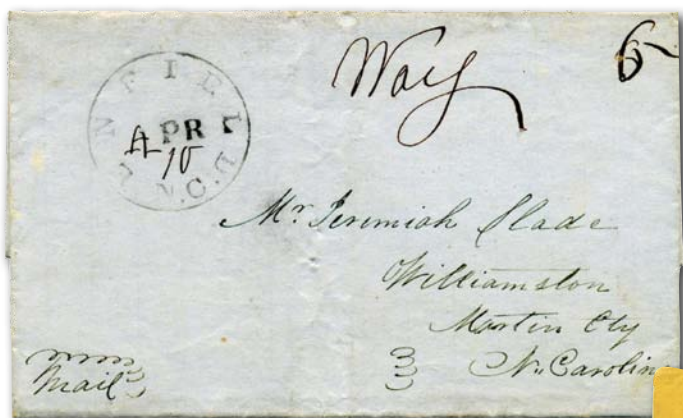 ENFIELD
APR
10
N.C.
Way
6
Mr. Jeremiah Slade
Williamston
Martin Cty
N. Carolina
Mail